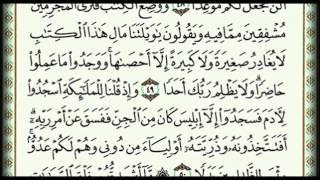 ألن نجعل لكم موعدا ۝٤٨ ووضع الكتب فترى المجرمين
مشفقين مما فيه ويقولون يويلتنا مال هذا الكتب
لا يغادر صغيرة ولا كبيرة إلا أحصىها ووجدوا ما عملوا
حاضرا ولا يظلم ربك أحدا ۝٤٩ وإذ قلنا للملئكة اسجدوا
لأدم فسجدوا إلا إبليس كان من الجن ففسق عن أمر ربه
أفتتخذونه وذريته أولياء من دوني وهم لكم عدو